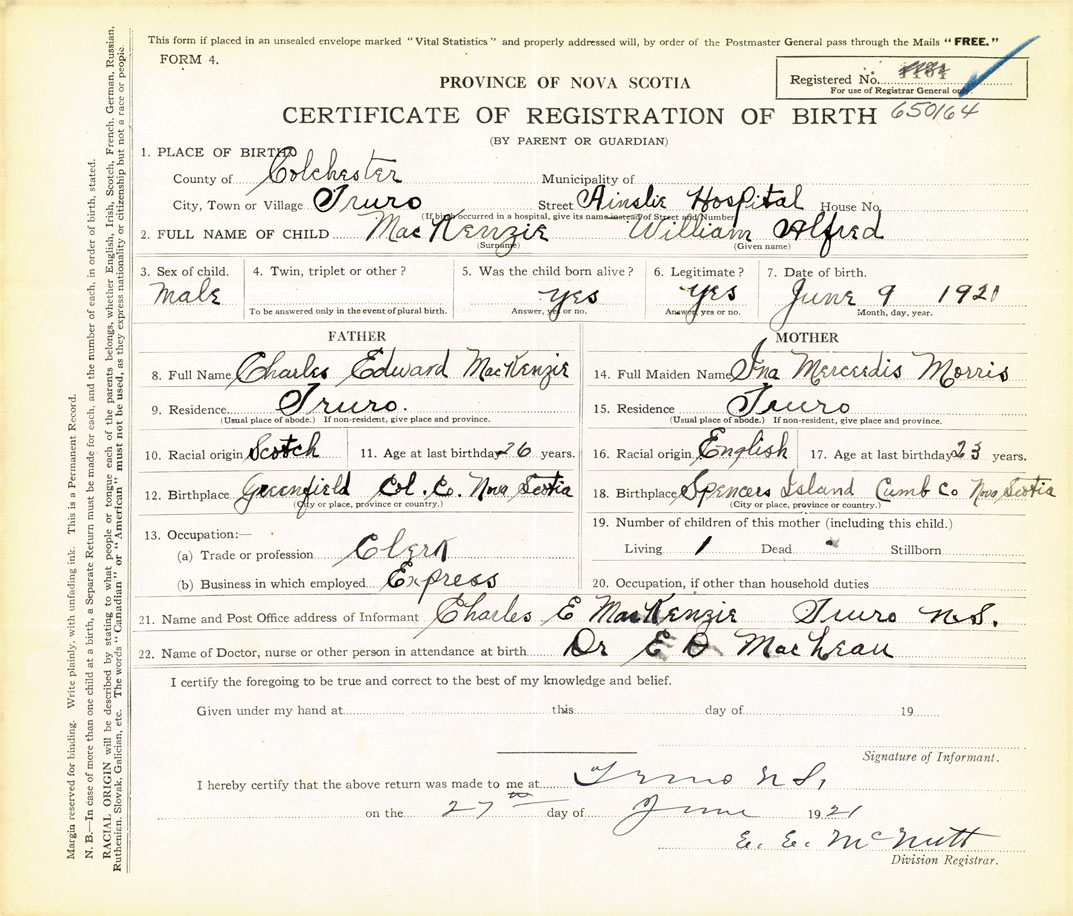 This form if placed in an unsealed envelope marked "Vital Statistics" and properly addressed will, by order of the Postmaster General pass through the Mails "FREE."
FORM 4.
Registered No.
For use of Registrar General only.
PROVINCE OF NOVA SCOTIA
CERTIFICATE OF REGISTRATION OF BIRTH 650164
(BY PARENT OR GUARDIAN)
1. PLACE OF BIRTH
County of Colchester Municipality of
City, Town or Village Truro Street Ainslie Hospital House No.
(If birth occurred in a hospital, give its name instead of Street and Number)
2. FULL NAME OF CHILD MacKenzie William Alfred
(Surname) (Given name)
3. Sex of child. 4. Twin, triplet or other? 5. Was the child born alive? 6. Legitimate? 7. Date of birth.
Male yes yes June 9 1921
To be answered only in the event of plural birth. Answer, yes or no. Answer, yes or no. Month, day, year.
FATHER MOTHER
8. Full Name Charles Edward MacKenzie 14. Full Maiden Name Ina Merceedis Morris
9. Residence Truro. 15. Residence Truro
(Usual place of abode.) If non-resident, give place and province. (Usual place of abode.) If non-resident, give place and province.
10. Racial origin Scotch 11. Age at last birthday 26 years. 16. Racial origin English 17. Age at last birthday 23 years.
12. Birthplace Greenfield Col. Co. Nova Scotia 18. Birthplace Spencers Island Cumb Co Nova Scotia
(City or place, province or country.) (City or place, province or country.)
13. Occupation:— 19. Number of children of this mother (including this child.)
(a) Trade or profession Clerk Living 1 Dead - Stillborn
(b) Business in which employed Express 20. Occupation, if other than household duties
21. Name and Post Office address of Informant Charles E MacKenzie Truro N.S.
22. Name of Doctor, nurse or other person in attendance at birth Dr E D MacLean
I certify the foregoing to be true and correct to the best of my knowledge and belief.
Given under my hand at this day of 19
Signature of Informant.
I hereby certify that the above return was made to me at Truro N.S,
on the 27th day of June 1921
E. E. McNutt
Division Registrar.
Margin reserved for binding. Write plainly, with unfading ink. This is a Permanent Record.
N. B.—In case of more than one child at a birth, a Separate Return must be made for each, and the number of each, in order of birth, stated.
RACIAL ORIGIN will be described by stating to what people or tongue each of the parents belongs, whether English, Irish, Scotch, French, German, Russian,
Ruthenian, Slovak, Galician, etc. The words "Canadian" or "American" must not be used, as they express nationality or citizenship but not a race or people.